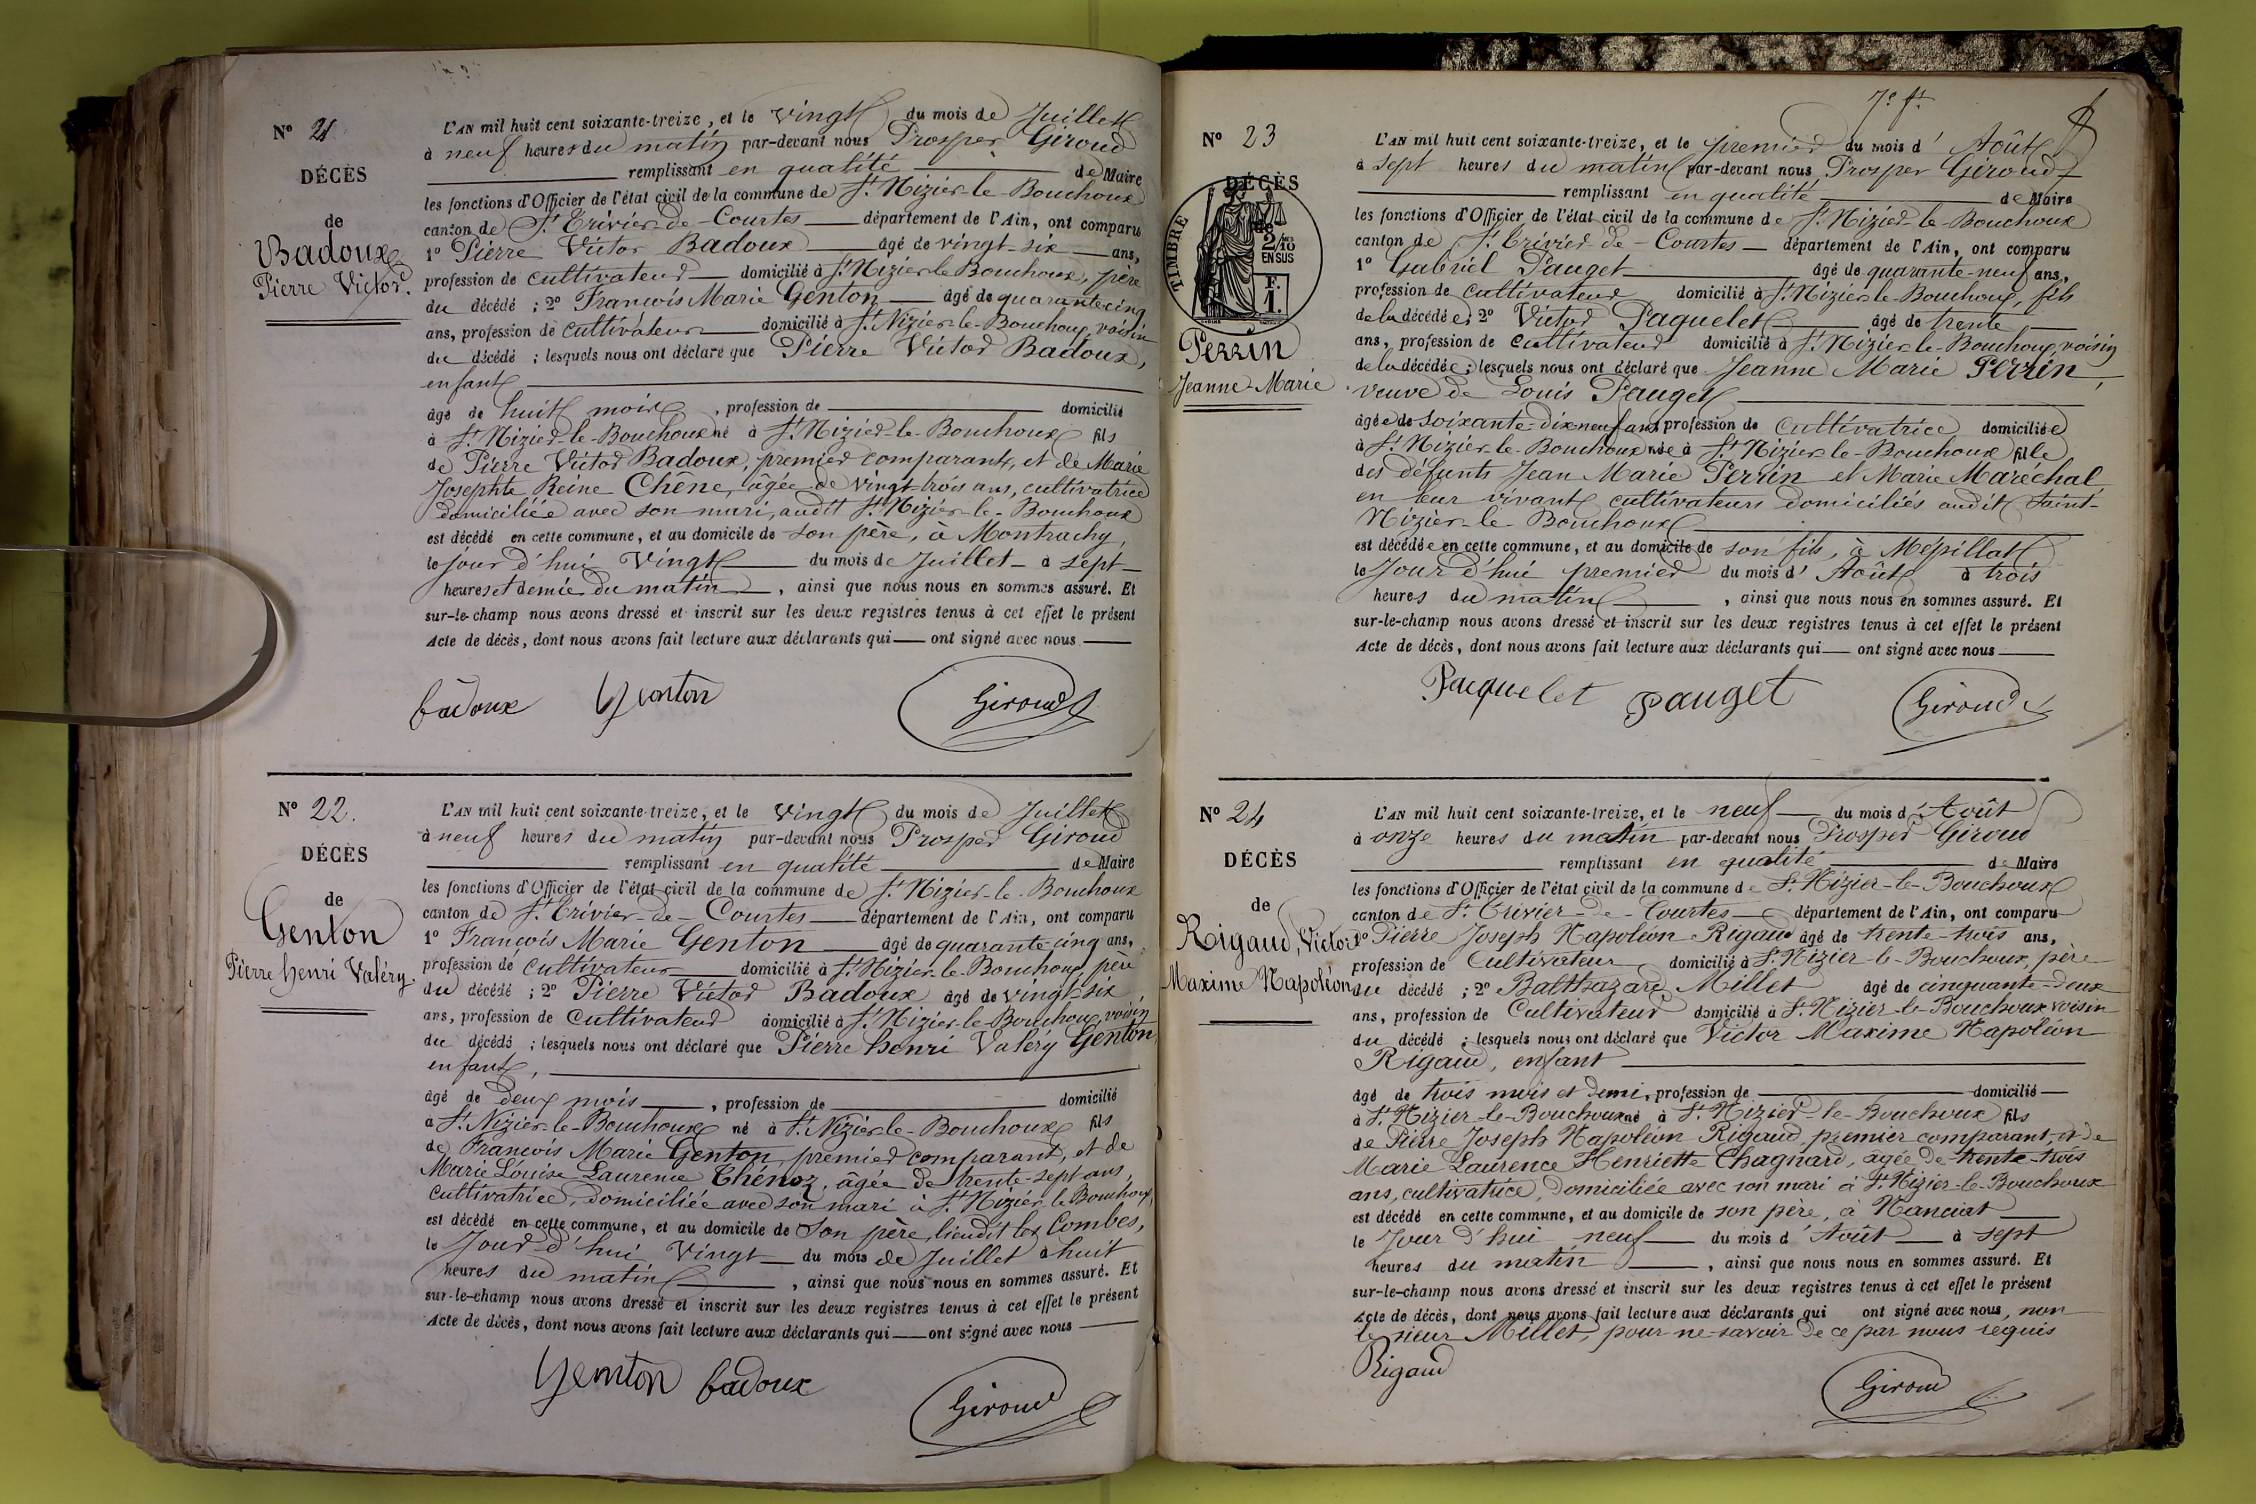 N° 21
DÉCÈS
de
Badoux
Pierre Victor.
L'AN mil huit cent soixante-treize, et le vingt du mois de Juillet
à neuf heures du matin par-devant nous Prosper Giroud
remplissant en qualité de Maire
les fonctions d'Officier de l'état civil de la commune de St Nizier-le-Bouchoux
canton de St Trivier-de-Courtes département de l'Ain, ont comparu
1° Pierre Victor Badoux âgé de vingt-six ans,
profession de cultivateur domicilié à St Nizier-le-Bouchoux, père
du décédé ; 2° François Marie Genton âgé de quarante cinq
ans, profession de cultivateur domicilié à St Nizier-le-Bouchoux, voisin
du décédé ; lesquels nous ont déclaré que Pierre Victor Badoux,
enfant
âgé de huit mois, profession de domicilié
à St Nizier-le-Bouchoux né à St Nizier-le-Bouchoux fils
de Pierre Victor Badoux, premier comparant, et de Marie
Josephte Reine Chêne, âgée de vingt-trois ans, cultivatrice
domiciliée avec son mari, audit St Nizier-le-Bouchoux
est décédé en cette commune, et au domicile de son père, à Montrachy,
le jour d'hui vingt du mois de Juillet à sept
heures et demie du matin, ainsi que nous nous en sommes assuré. Et
sur-le-champ nous avons dressé et inscrit sur les deux registres tenus à cet effet le présent
Acte de décès, dont nous avons fait lecture aux déclarants qui ont signé avec nous
badoux Genton Giroud
N° 22.
DÉCÈS
de
Genton
Pierre henri Valéry.
L'AN mil huit cent soixante-treize, et le vingt du mois de Juillet
à neuf heures du matin par-devant nous Prosper Giroud
remplissant en qualité de Maire
les fonctions d'Officier de l'état civil de la commune de St Nizier-le-Bouchoux
canton de St Trivier-de-Courtes département de l'Ain, ont comparu
1° François Marie Genton âgé de quarante-cinq ans,
profession de cultivateur domicilié à St Nizier-le-Bouchoux, père
du décédé ; 2° Pierre Victor Badoux âgé de vingt-six
ans, profession de cultivateur domicilié à St Nizier-le-Bouchoux, voisin
du décédé ; lesquels nous ont déclaré que Pierre henri Valéry Genton
enfant,
âgé de deux mois, profession de domicilié
à St Nizier-le-Bouchoux né à St Nizier-le-Bouchoux fils
de François Marie Genton, premier comparant, et de
Marie Louise Laurence Thénoz, âgée de trente-sept ans,
cultivatrice, domiciliée avec son mari à St Nizier-le-Bouchoux,
est décédé en cette commune, et au domicile de son père, lieudit les Combes,
le jour d'hui vingt du mois de Juillet à huit
heures du matin, ainsi que nous nous en sommes assuré. Et
sur-le-champ nous avons dressé et inscrit sur les deux registres tenus à cet effet le présent
Acte de décès, dont nous avons fait lecture aux déclarants qui ont signé avec nous
Genton badoux
Giroud
7e ft
N° 23
DÉCÈS
de
TIMBRE
2/10 EN SUS
F. 1.
Perrin
Jeanne-Marie
L'AN mil huit cent soixante-treize, et le premier du mois d'Août
à sept heures du matin par-devant nous Prosper Giroud
remplissant en qualité de Maire
les fonctions d'Officier de l'état civil de la commune de St Nizier-le-Bouchoux
canton de St Trivier-de-Courtes département de l'Ain, ont comparu
1° Gabriel Pauget âgé de quarante-neuf ans,
profession de cultivateur domicilié à St Nizier-le-Bouchoux, fils
de la décédée; 2° Victor Paquelet âgé de trente
ans, profession de cultivateur domicilié à St Nizier-le-Bouchoux, voisin
de la décédée; lesquels nous ont déclaré que Jeanne Marie Perrin,
veuve de Louis Pauget
âgée de soixante-dix neuf ans profession de cultivatrice domiciliée
à St Nizier-le-Bouchoux née à St Nizier-le-Bouchoux fille
des défunts Jean Marie Perrin et Marie Maréchal
en leur vivant cultivateurs domiciliés audit Saint-
Nizier-le-Bouchoux
est décédée en cette commune, et au domicile de son fils, à Mépillat
le jour d'hui premier du mois d'Août à trois
heures du matin, ainsi que nous nous en sommes assuré. Et
sur-le-champ nous avons dressé et inscrit sur les deux registres tenus à cet effet le présent
Acte de décès, dont nous avons fait lecture aux déclarants qui ont signé avec nous
Pacquelet pauget Giroud
N° 24
DÉCÈS
de
Rigaud, Victor
Maxime Napoléon
L'AN mil huit cent soixante-treize, et le neuf du mois d'Août
à onze heures du matin par-devant nous Prosper Giroud
remplissant en qualité de Maire
les fonctions d'Officier de l'état civil de la commune de St Nizier-le-Bouchoux
canton de St Trivier-de-Courtes département de l'Ain, ont comparu
1° Pierre Joseph Napoléon Rigaud âgé de trente-trois ans,
profession de Cultivateur domicilié à St Nizier-le-Bouchoux, père
du décédé ; 2° Balthazard Millet âgé de cinquante-deux
ans, profession de Cultivateur domicilié à St Nizier-le-Bouchoux voisin
du décédé ; lesquels nous ont déclaré que Victor Maxime Napoléon
Rigaud, enfant
âgé de trois mois et demi, profession de domicilié
à St Nizier-le-Bouchoux né à St Nizier-le-Bouchoux fils
de Pierre Joseph Napoléon Rigaud, premier comparant, et de
Marie Laurence Henriette Chagnard, âgée de trente-trois
ans, cultivatrice, domiciliée avec son mari à St Nizier-le-Bouchoux
est décédé en cette commune, et au domicile de son père, à Nanciat
le jour d'hui neuf du mois d'Août à sept
heures du matin, ainsi que nous nous en sommes assuré. Et
sur-le-champ nous avons dressé et inscrit sur les deux registres tenus à cet effet le présent
Acte de décès, dont nous avons fait lecture aux déclarants qui ont signé avec nous, non
le sieur Millet, pour ne savoir de ce par nous requis
Rigaud
Giroud